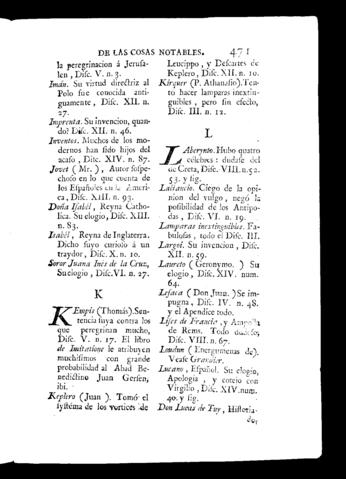 DE LAS COSAS NOTABLES. 471
la peregrinacion á Jerusa-
len, Disc. V. n. 3.
Imán. Su virtud directriz al
Polo fue conocida anti-
guamente, Disc. XII. n.
27.
Inprenta. Su invencion, quan-
do? Disc. XII. n. 46.
Inventos. Muchos de los mo-
dernos han sido hijos del
acaso, Disc. XIV. n. 87.
Jovet (Mr.), Autor sospe-
choso en lo que cuenta de
los Españoles en la Ameri-
ca, Disc. XIII. n. 93.
Doña Isabél, Reyna Catho-
lica. Su elogio, Disc. XIII.
n. 83.
Isabél, Reyna de Inglaterra.
Dicho suyo curioso á un
traydor, Disc. X. n. 10.
Soror Juana Inés de la Cruz,
Su elogio, Disc. VI. n. 27.
K
Kempis (Thomás). Sen-
tencia suya contra los
que peregrinan mucho,
Disc. V. n. 17. El libro
de Imitatione le atribuyen
muchisimos con grande
probabilidad al Abad Be-
nedictino Juan Gersen,
ibi.
Keplero (Juan). Tomó el
systéma de los vortices de
Leucippo, y Descartes de
Keplero, Disc. XII. n. 10.
Kirquer (P. Athanasio). Ten-
tó hacer lamparas inextin-
guibles, pero sin efecto,
Disc. III. n. 12.
L
Laberynto. Hubo quatro
célebres: dudase del
de Creta, Disc. VIII. n. 52.
53. y sig.
Lactancio. Ciego de la opi-
nion del vulgo, negó la
posibilidad de los Antipo-
das, Disc. VI. n. 19.
Lamparas inextinguibles. Fa-
bulosas, todo el Disc. III.
Largol. Su invencion, Disc.
XII. n. 59.
Laureto (Geronymo.) Su
elogio, Disc. XIV. num.
64.
Lesaca (Don Juan.) Se im-
pugna, Disc. IV. n. 48.
y el Apendice todo.
Lises de Francia, y Ampolla
de Rems. Todo dudoso,
Disc. VIII. n. 67.
Loudun (Energumenas de).
Vease Grandier.
Lucano, Español. Su elogio,
Apologia, y cotejo con
Virgilio, Disc. XIV. num.
40. y sig.
Don Lucas de Tuy, Historia-
dor,